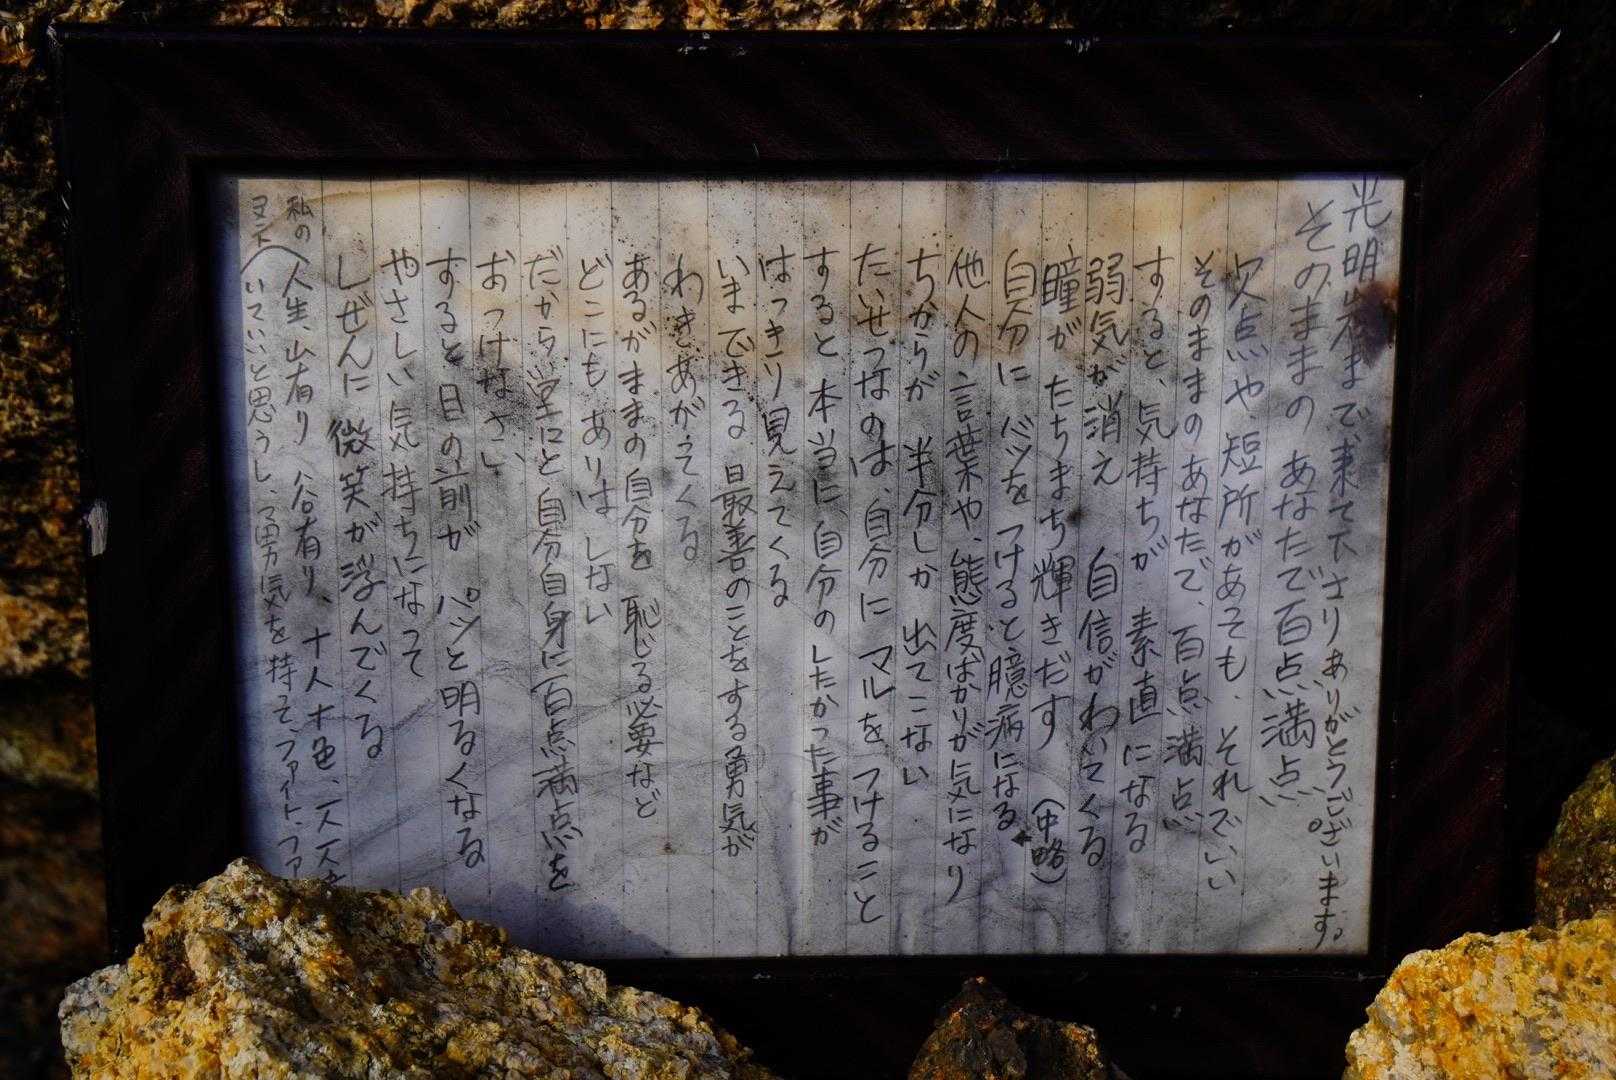 光明岩まで来て下さりありがとうございます。
そのままのあなたで百点満点。
欠点や、短所があっても、それでいい
そのままのあなたで、百点満点
すると、気持ちが素直になる
弱気が消え 自信がわいてくる
瞳がたちまち輝きだす (中略)
自分にバツをつけると臆病になる
他人の言葉や、態度ばかりが気になり
ちからが 半分しか出てこない
たいせつなのは、自分に マルを つけること
すると本当に、自分のしたかった事が
はっきり見えてくる
いまできる最善のことをする勇気が
わきあがってくる
あるがままの自分を恥じる必要など
どこにもありはしない
だから堂々と自分自身に百点満点を
おつけなさい
すると目の前が パッと明るくなる
やさしい気持ちになって
しぜんに微笑が浮んでくる
私の(人生、山有り 谷有り、十人十色、
(いていいと思うし、勇気を持って、ファイト、